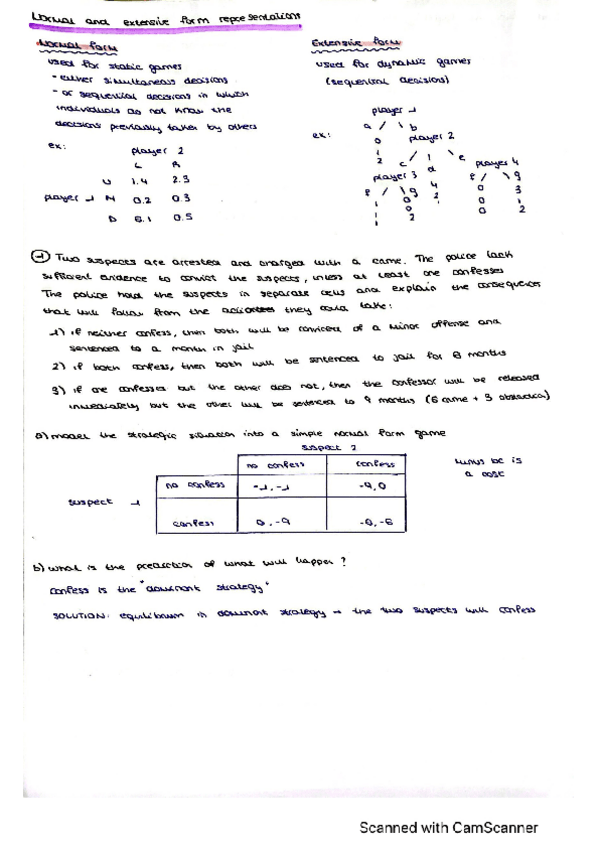 Normal and extensive form representations
Normal form
used for static games
- either simultaneous decisions
- or sequential decisions in which
individuals do not know the
decisions previously taken by others
ex:
player 2
L R
U 1.4 2.3
player 1 M 0.2 0.3
D 0.5
Extensive form
used for dynamic games
(sequential decisions)
ex:
player 1
a b
0 player 2
2 c d e player 4
player 3
f g
0 3
0 0
0 2
1) Two suspects are arrested and charged with a crime. The police lack
sufficient evidence to convict the suspects, unless at least one confesses
The police hold the suspects in separate cells and explain the consequences
that will follow from the actions they could take:
1) if neither confess, then both will be convicted of a minor offense and
sentenced to a month in jail
2) if both confess, then both will be sentenced to jail for 6 months
3) if one confesses but the other does not, then the confessor will be released
immediately but the other will be sentenced to 9 months (6 crime + 3 obstruction)
a) model the strategic situation into a simple normal form game
suspect 2
no confess confess
no confess -1,-1 -9,0
suspect 1
confess 0,-9 -6,-6
minus bc is
a cost
b) what is the prediction of what will happen?
confess is the "dominant strategy"
SOLUTION: equilibrium in dominant strategy → the two suspects will confess
Scanned with CamScanner